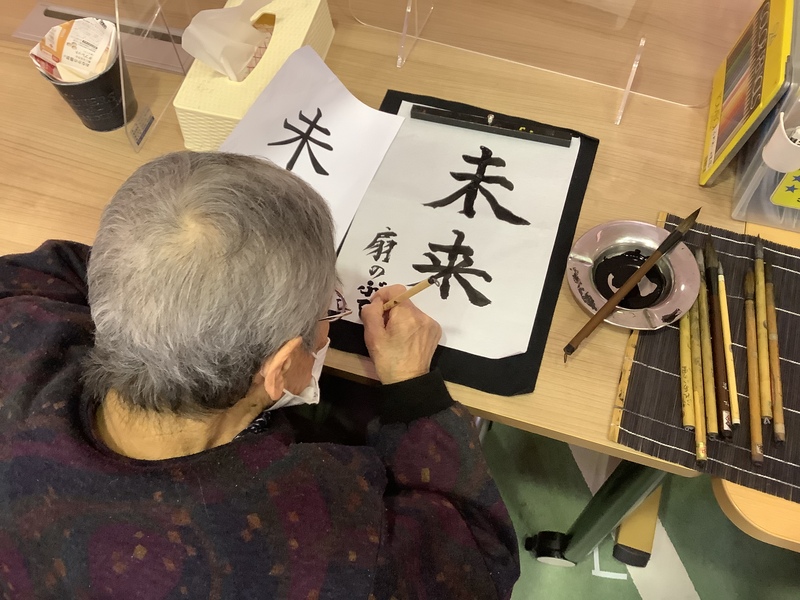 未来
扇のぶ
未